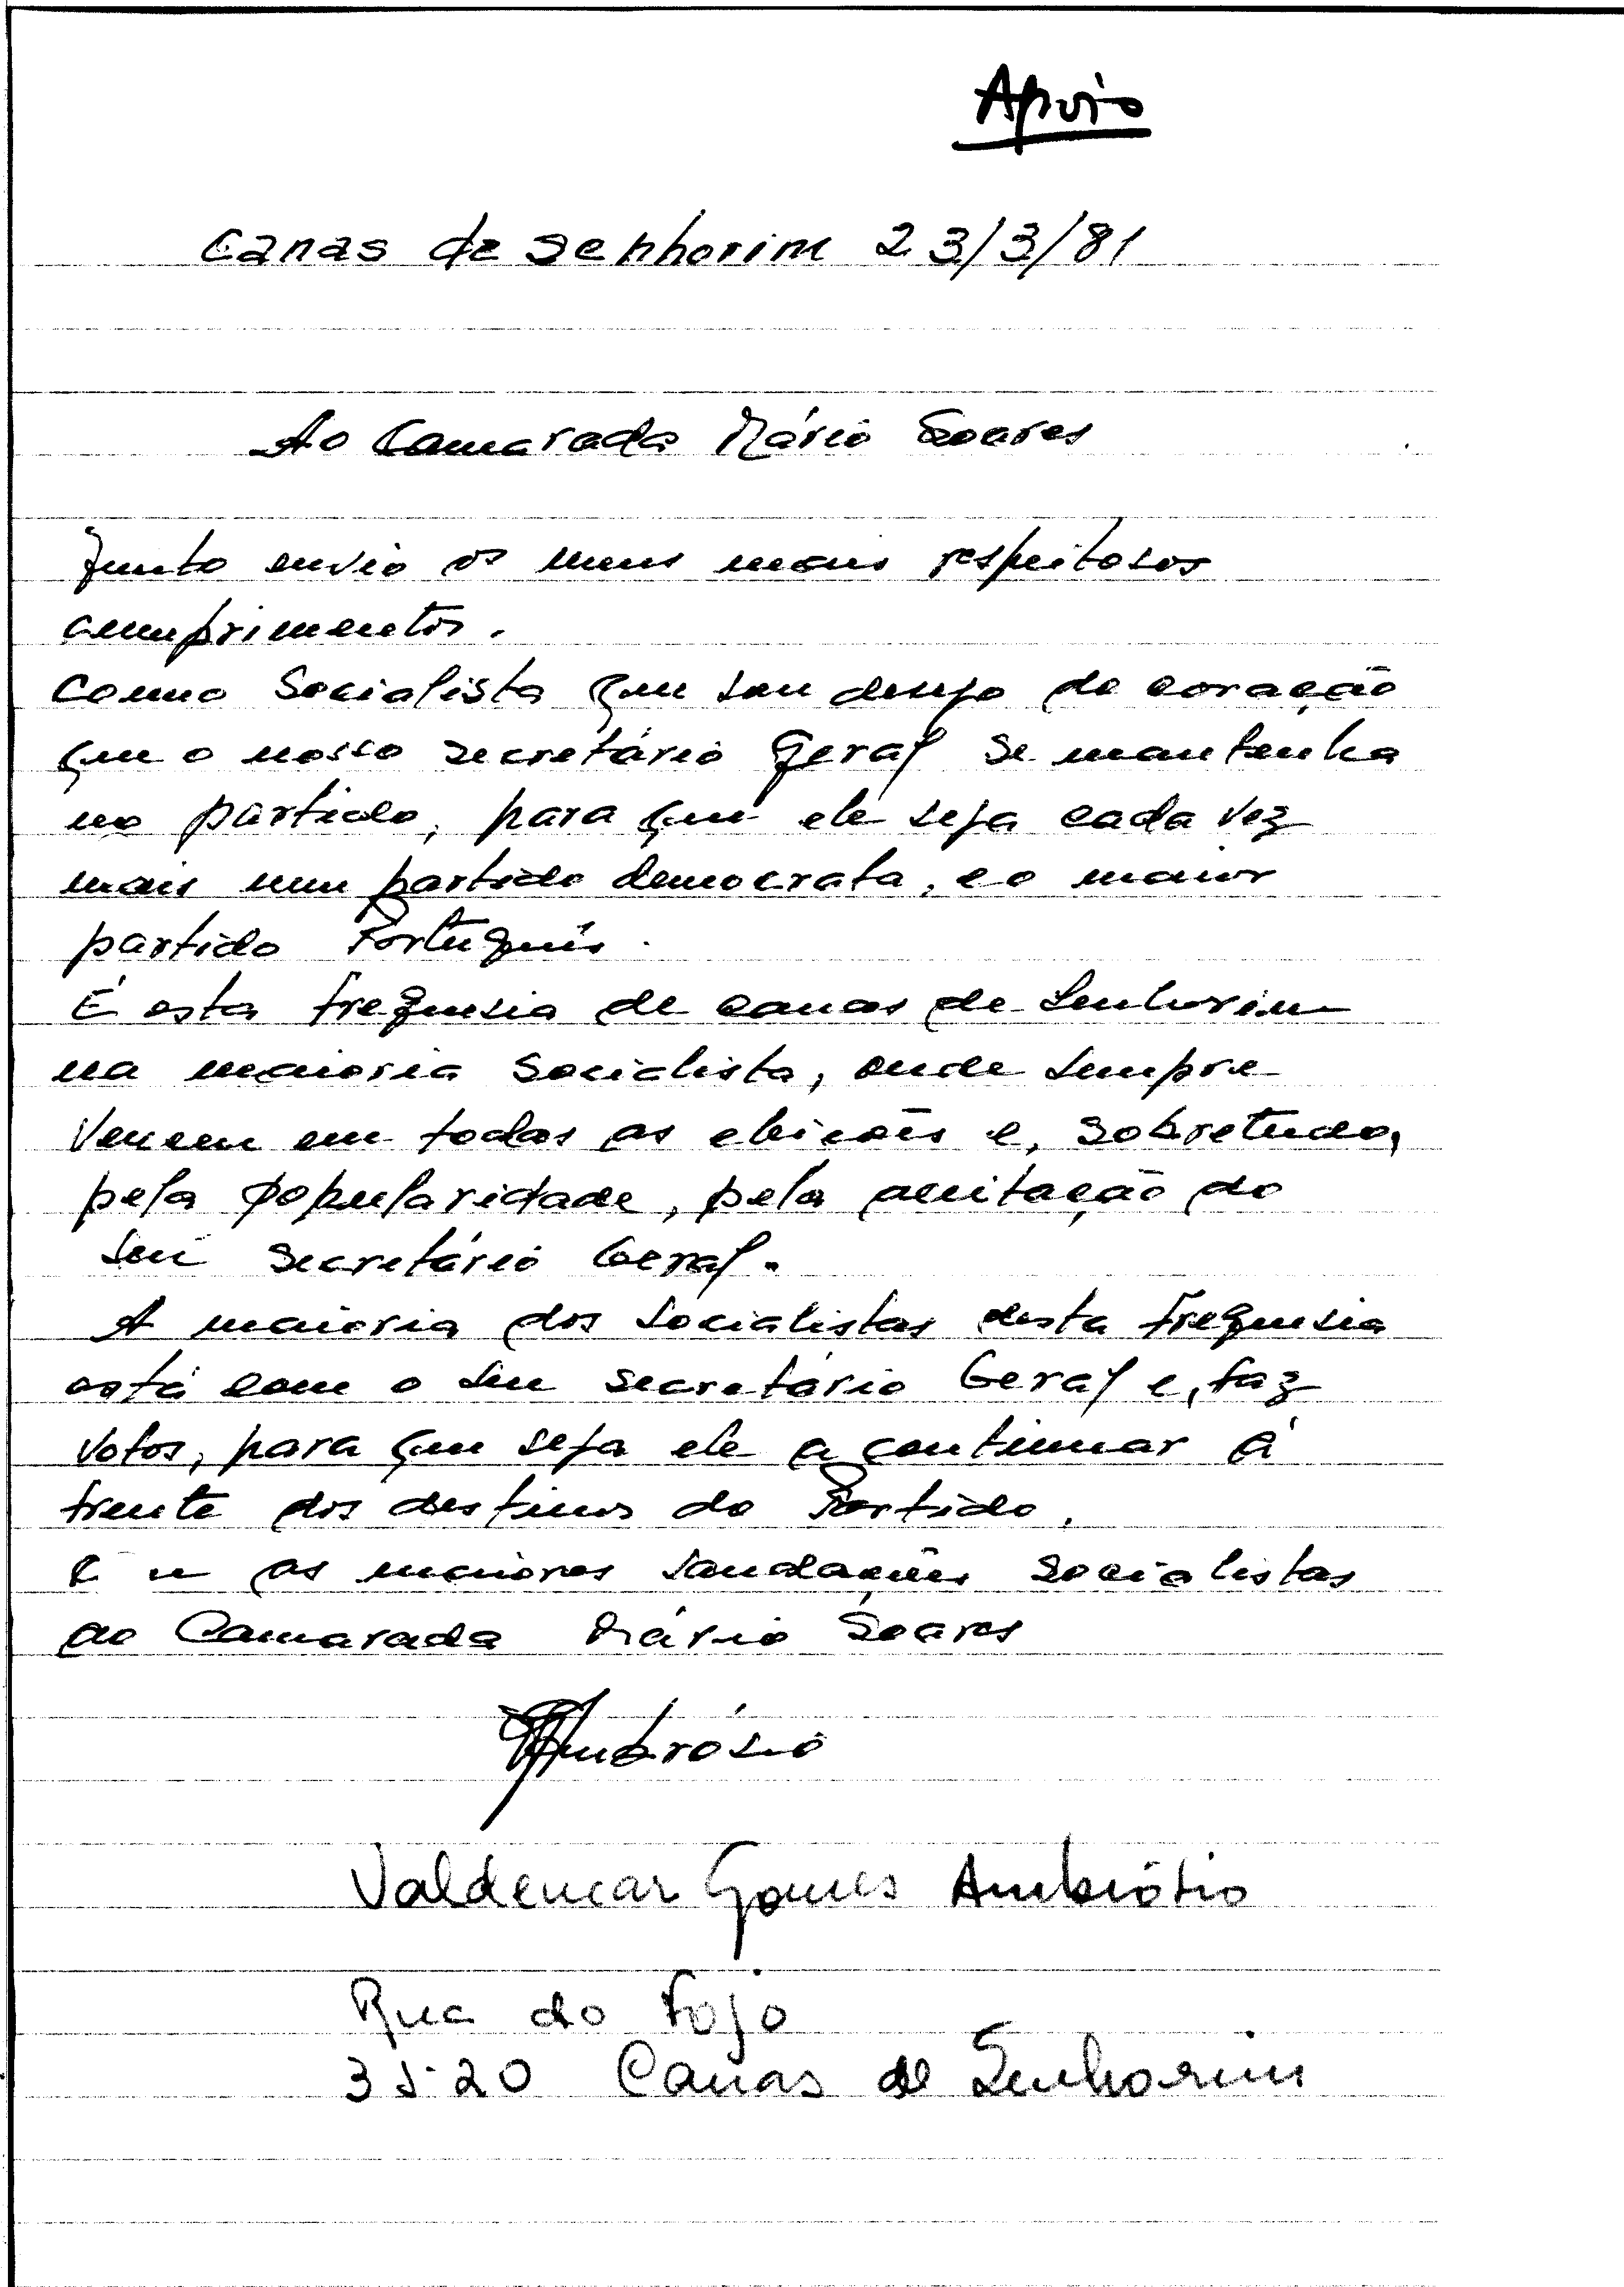 Apoio
Canas de Senhorim 23/3/81
Ao Camarada Mário Soares
Junto envio os meus mais respeitosos
cumprimentos.
Como Socialista que sou desejo do coração
que o nosso secretário Geral se mantenha
no partido, para que ele seja cada vez
mais um partido democrata, e o maior
partido Português.
É esta freguesia de Canas de Senhorim
na maioria Socialista, onde sempre
vencem em todas as eleições e, sobretudo,
pela popularidade, pela aceitação do
seu Secretário Geral.
A maioria dos Socialistas desta freguesia
está com o seu secretário Geral e, faz
votos, para que seja ele a continuar á
frente dos destinos do Partido.
as maiores saudações socialistas
ao Camarada Mário Soares
Ambrósio
Valdemar Gomes Ambrósio
Rua do Fojo
3520 Canas de Senhorim